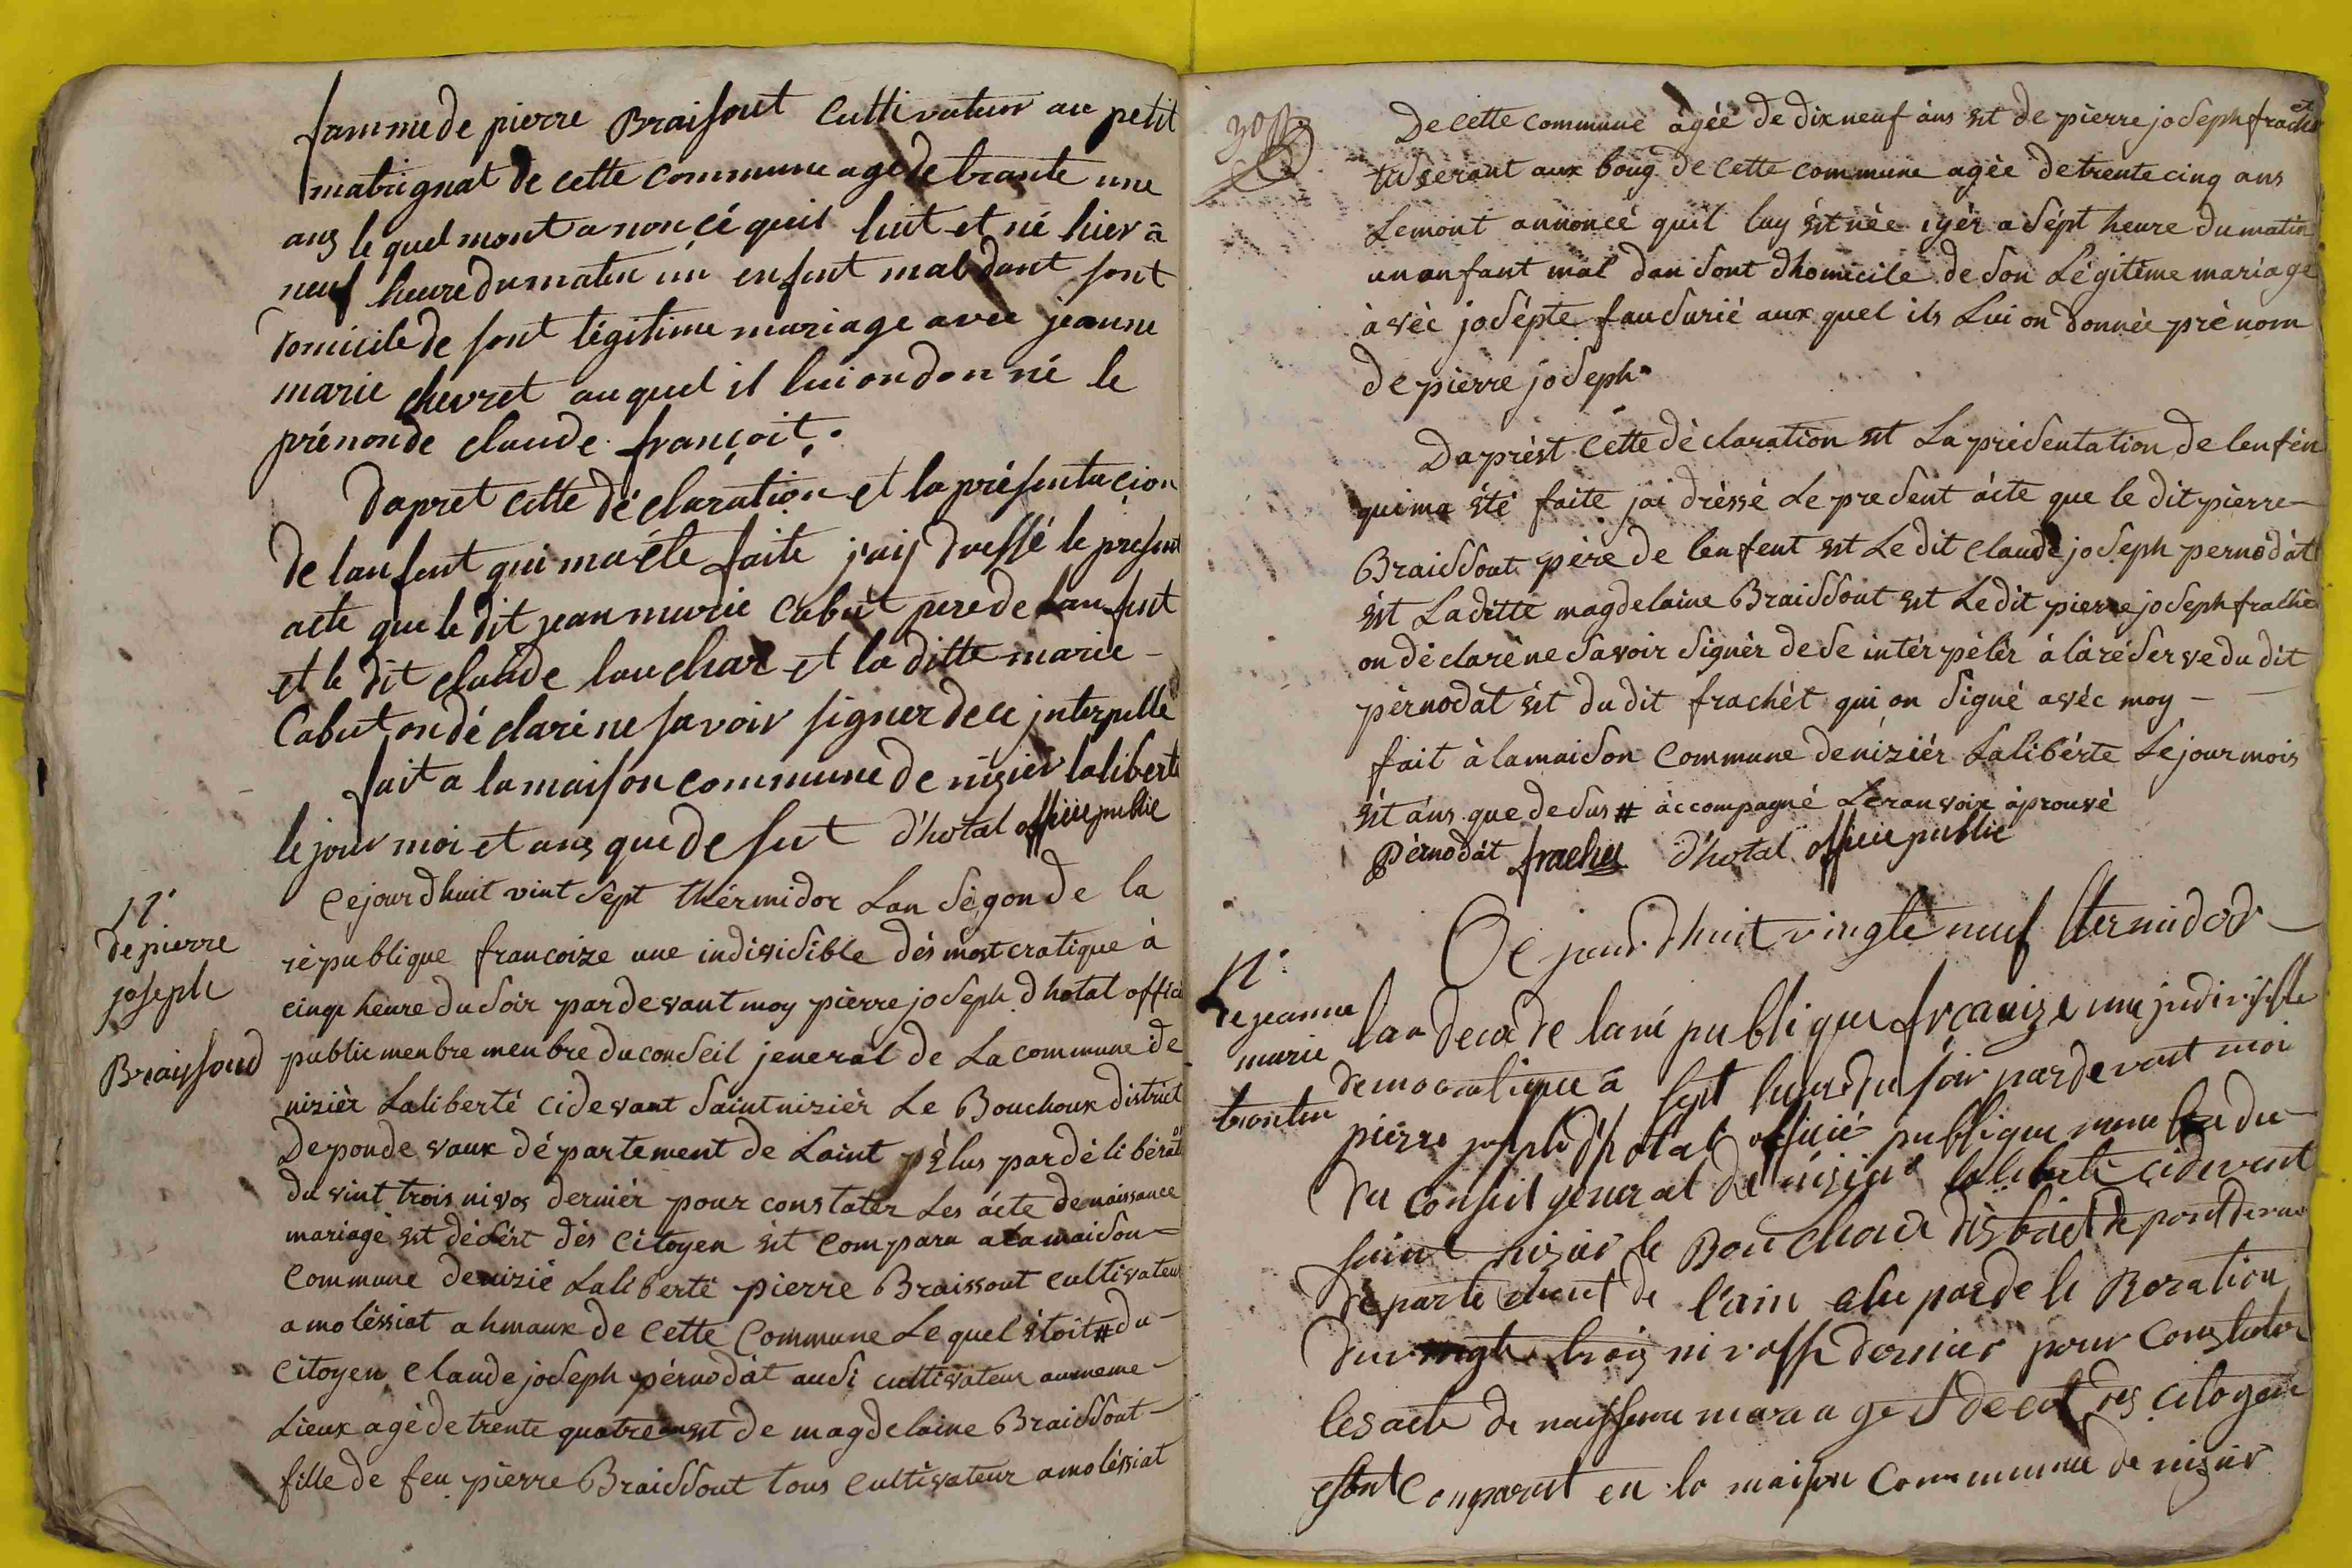 famme de pierre Braisout Cultivateur au petit
matrignat de cette commune age de trante une
ans le quel mont anoncé quil luit et né hier a
neuf heure du matin un enfent mal dant sont
domicile de sont légitime mariage avec jeanne
marie chevret auquel il lui on donné le
prénon de claude françoit.
dapret cette déclaration et la présentacion
de lanfent qui ma été faite jaij dressé le present
acte que le dit jean marie Cabut pere de lanfent
et le dit claude louchar et la ditte marie
Cabut on déclaré ne savoir signer de ce interpellé
fait a la maison commune de nizier laliberté
le jour moi et ans que desut d'hotal officié public
N.
de pierre
joseph
Braissoud
Cejourdhuit vint sept thérmidor Lan ségonde la
république francoize une indivisible démostcratique à
cinqe heure du soir pardevant moy pierre joseph dhotal officié
public menbre menbre du conseil jeneral de La commune de
niziér Laliberté cidevant saint niziér Le Bouchoux district
de ponde vaux département de Laint élus par délibérat
du vint trois nivos derniér pour constatér Les ácte de naissance
mariage est décért dés citoyen est compara a la maison
commune de nizié Laliberté pierre Braissout cultivateur
a moléssiat ahmaux de cette Commune Lequel étoit # du
citoyen Claude joseph pérnodat ausi cultivateur au meme
Lieux agé de trente quatre ans est de magdelaine Braissout
fille de feu pierre Braissout tous cultivateur a moléssiat
De cette commune agée de dix neuf áns est de pierre joseph frachet
residerant aux boug de cette commune agée de trente cinq ans
Lemont annoncé quil luy est née iyér a sépt heure du matin
un anfant mal dan sont dhomicile de son Légitime mariage
àvéc josépte fausurié aux quel ils Lui on donnée prénom
de pierre joseph
Daprést Cette déclaration est La présentation de lenfen
qui ma été faite jai dréssé Le present ácte que le dit pierre
Braissout pére de lenfent est Le dit claude joseph pernodàt
est Laditte magdelaine Braissout est Le dit pierre joseph frachet
on déclaré ne savoir signér de se intérpélér à la réserve du dit
pérnodat est du dit frachét qui on signé avéc moy
fait à la maison Commune de niziér Laliberte Le jour mois
ést áns que desus # àccompagné Leranvoix áprouvé
pérnodàt frachet d'hotal officié public
N.
de jeanne
marie
trontin
Ce jourdhuit vingte neuf thermidor
lan deca de lané publique frcauize une indivisible
democratique a sept heure du soir pardevant moi
pierre joseph d'hotal officié publique membre du
du conseil general de nizier laliberté cidevent
saint nizier le Bouchoux disbrict de pontdevau
département de l'ain elu par de le Boration
du vingte trois nivosse dernier pour constater
les acte de naissence mariage et decet des citoyen
estent comparut en la maison Commumme de nizier